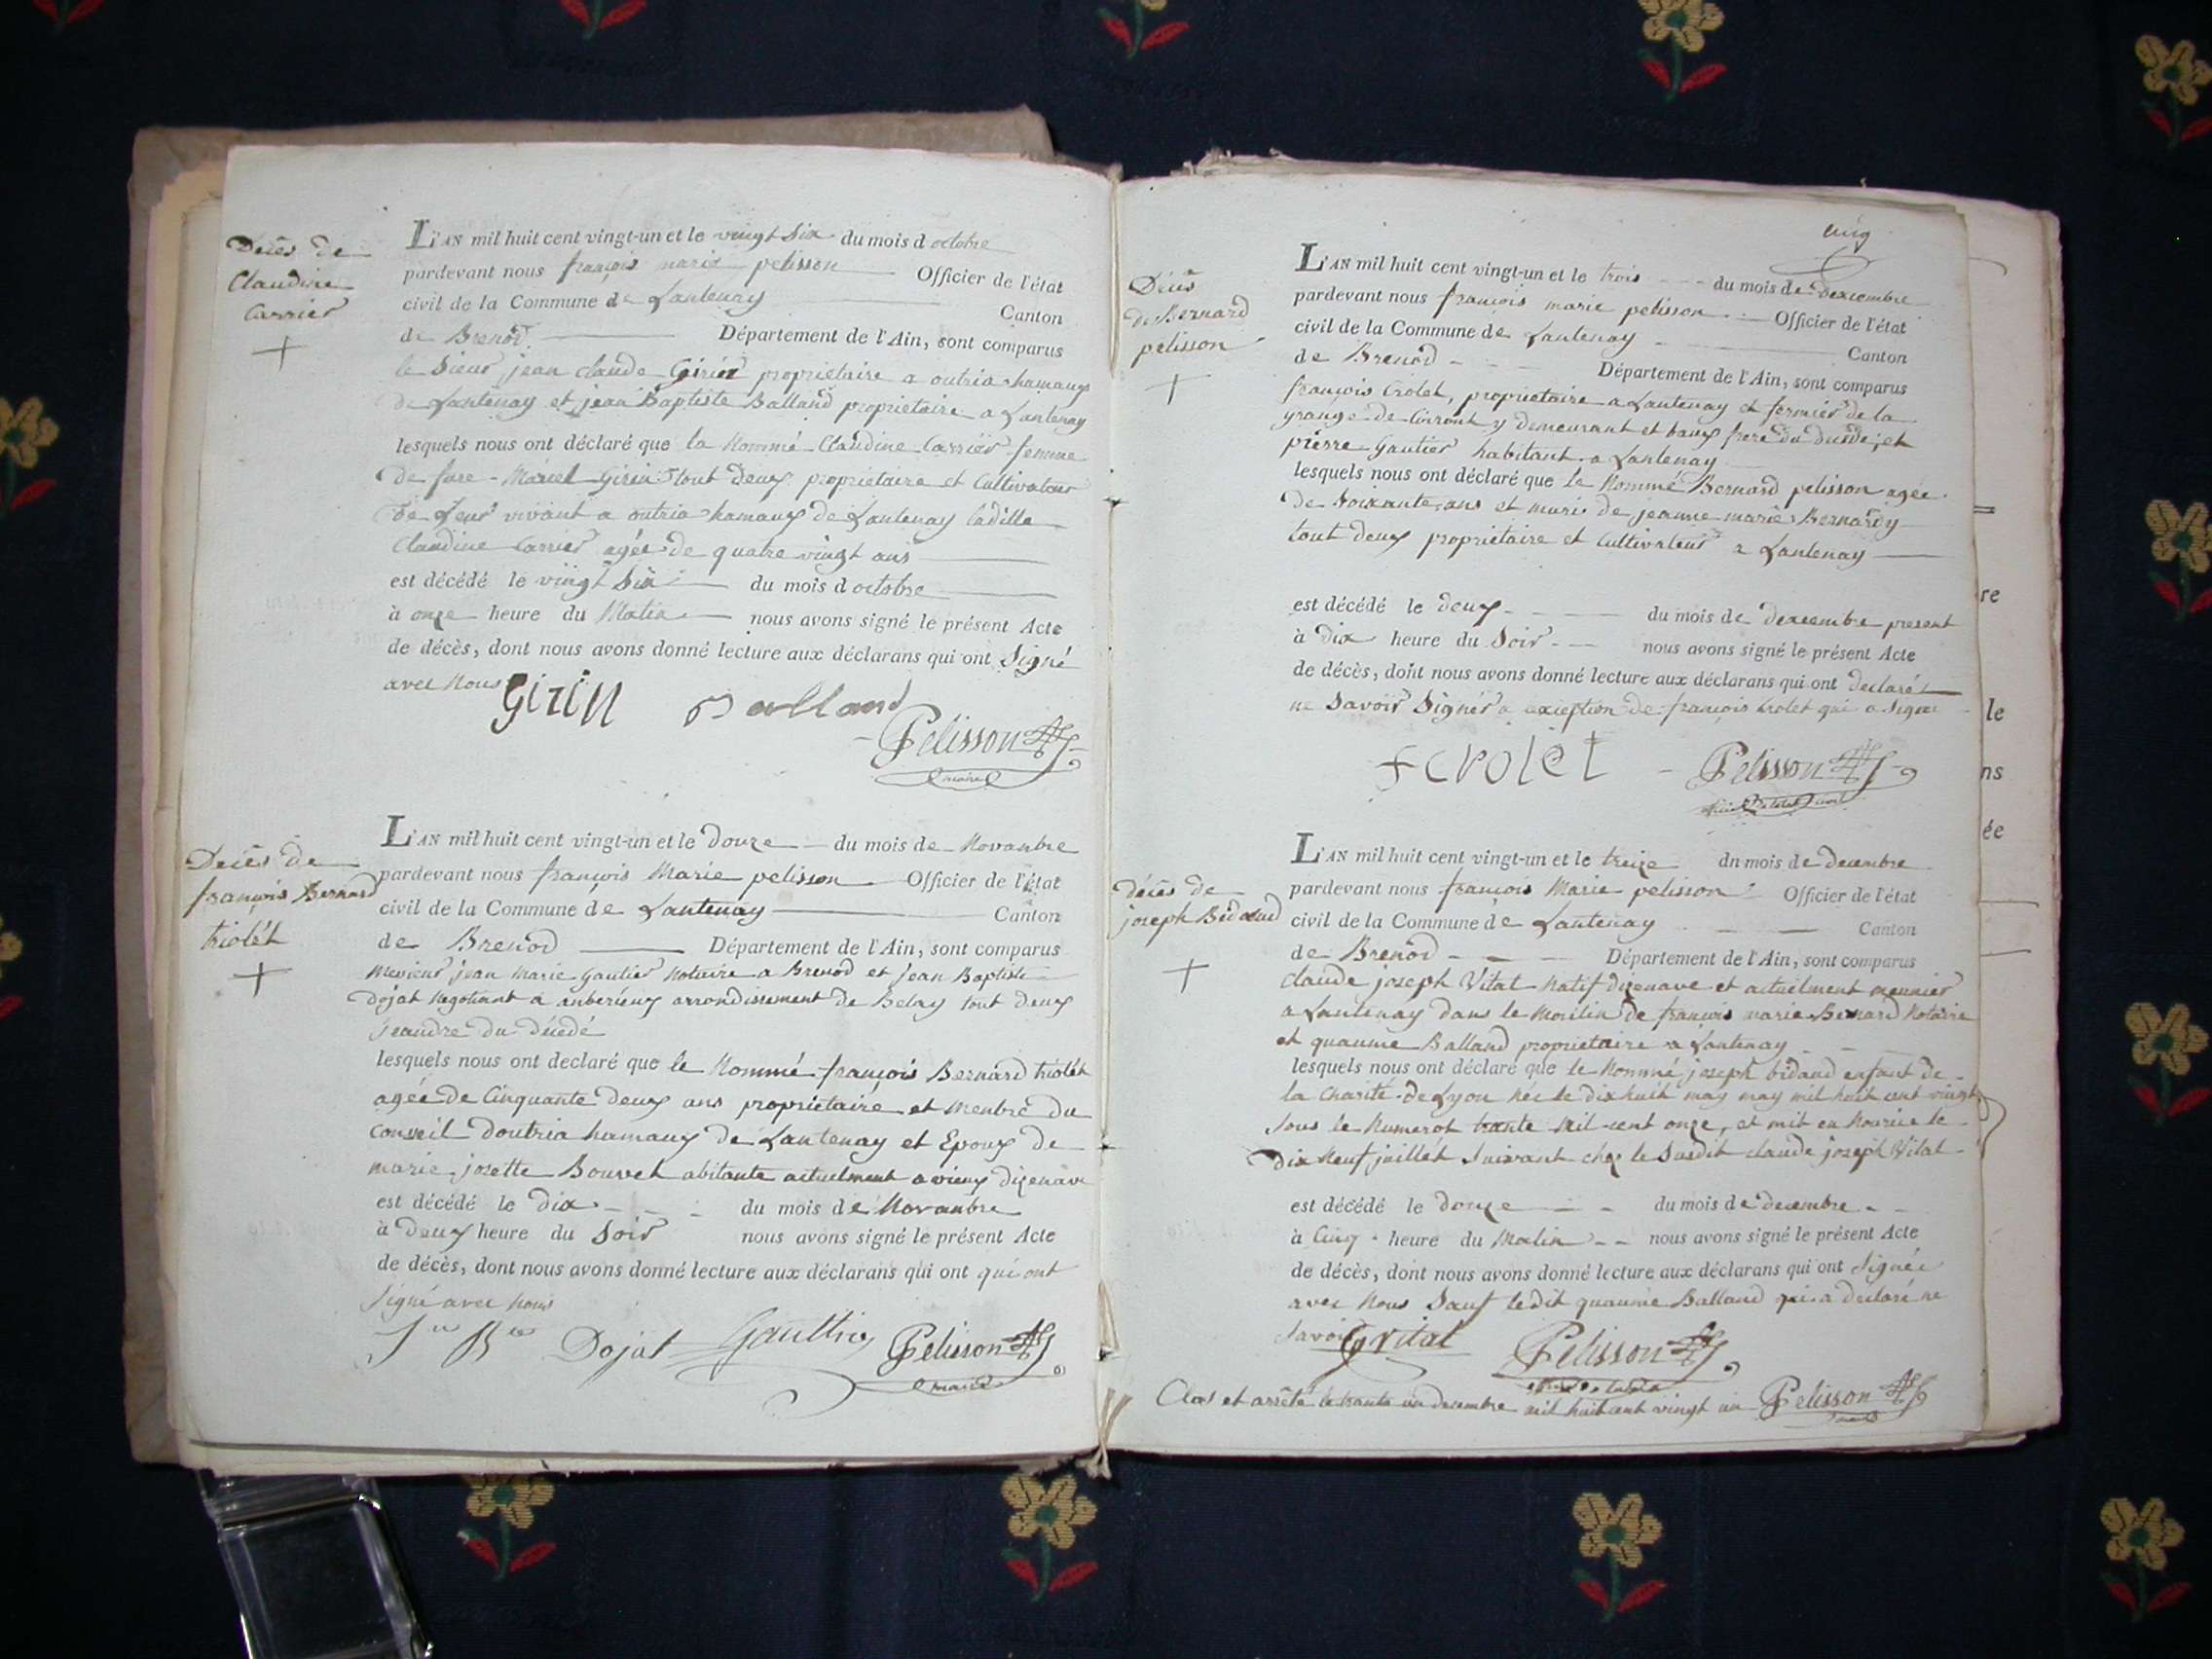 Decès de
Claudine
Carrier
L'AN mil huit cent vingt-un et le vingt six du mois d octobre
pardevant nous françois marie pelisson Officier de l'état
civil de la Commune de Lantenay Canton
de Brenod Département de l'Ain, sont comparus
le Sieur jean claude Girin propriétaire a outria hamaux
de Lantenay et jean Baptiste Balland propriétaire a Lantenay
lesquels nous ont déclaré que la Nommé Claudine Carrier femme
de fure Marcel Girin tout deux propriétaire et Cultivateur
de Leur vivant a outria hamaux de Lantenay ladille
Claudine Carrier agée de quatre vingt ans
est décédé le vingt Six du mois d octobre
à onze heure du Matin nous avons signé le présent Acte
de décès, dont nous avons donné lecture aux déclarans qui ont Signé
avec Nous Girin Balland
Pelisson
maire
Decès de
françois Bernard
triolét
L'AN mil huit cent vingt-un et le Douze du mois de Novanbre
pardevant nous françois Marie pelisson Officier de l'état
civil de la Commune de Lantenay Canton
de Brenod Département de l'Ain, sont comparus
Mesieur jean Marie Gautier Notaire a Brenod et jean Baptiste
Dojat Negotiant a anberieux arrondissement de Belay tout deux
jeandre du décédé
lesquels nous ont declaré que le Nommé françois Bernard triolét
agée de Cinquante Deux ans propriétaire et Menbre du
Conseil Doutria hamaux de Lantenay et Epoux de
marie josette Bouvet abitante actuelment a vieux dizenave
est décédé le dix du mois de Novanbre
à Deux heure du Soir nous avons signé le présent Acte
de décès, dont nous avons donné lecture aux déclarans qui ont qui ont
Signé avec Nous
Jn Bte Dojat Gauthier Pelisson
maire
cinq
Décès
de Bernard
pelisson
L'AN mil huit cent vingt-un et le trois du mois de Dexcembre
pardevant nous françois marie pelisson Officier de l'état
civil de la Commune de Lantenay Canton
de Brenod Département de l'Ain, sont comparus
françois Crolet, propriétaire a Lantenay et fermier de la
grange de Corront y demeurant et baux frere du dusdé, et
pierre Gautier habitant a Lantenay
lesquels nous ont déclaré que le Nommé Bernard pelisson agée
de Soixante ans et mari de jeanne marie Bernardy
tout deux propriétaire et Cultivateur a Lantenay
est décédé le deux du mois de Dexcembre présent
à Dix heure du Soir nous avons signé le présent Acte
de décès, dont nous avons donné lecture aux déclarans qui ont declaré
ne Savoir Signér a exception de françois Crolet qui a Signé
f crolet Pelisson
décès de
joseph Bidaud
L'AN mil huit cent vingt-un et le treize du mois de decembre
pardevant nous françois Marie pelisson Officier de l'état
civil de la Commune de Lantenay Canton
de Brenod Département de l'Ain, sont comparus
Claude joseph Vital Natif dizenave et actuelment meunier
a Lantenay Dans le Moulin de françois marie Bernard Notaire
et quaume Balland propriétaire a Lantenay
lesquels nous ont déclaré que le Nommé joseph bidaud enfant de
la Charité de Lyon née le dix huit may may mil huit cent vingt
Sous le Numerot trante Mil cent onze, et mit en Nourice le
Dix Neuf juillét Suivant chez le Susdit claude joseph Vital
est décédé le douze du mois de decembre
à Cinq heure du Matin nous avons signé le présent Acte
de décès, dont nous avons donné lecture aux déclarans qui ont Signée
avec Nous Sauf ledit quaume Balland qui a déclaré ne
Savoir vital Pelisson
Clos et arrêté le trante un decembre mil huit cent vingt un Pelisson
maire
re
le
ns
ée